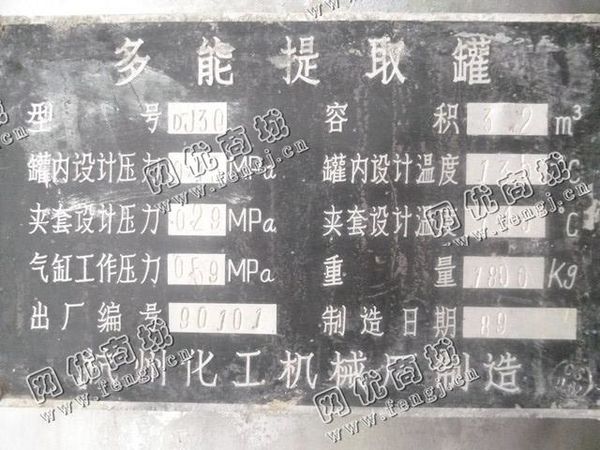 多能提取罐
型号 DJ30 容积 3.2 m³
罐内设计压力 MPa 罐内设计温度 °C
夹套设计压力 0.29 MPa 夹套设计温度 °C
气缸工作压力 0.59 MPa 重量 1800 Kg
出厂编号 90101 制造日期 89
州化工机械厂制造
网优商城
www.fengj.cn
网优商城
www.fengj.cn
网优商城
www.fengj.cn
网优商城
www.fengj.cn
网优商城
www.fengj.cn